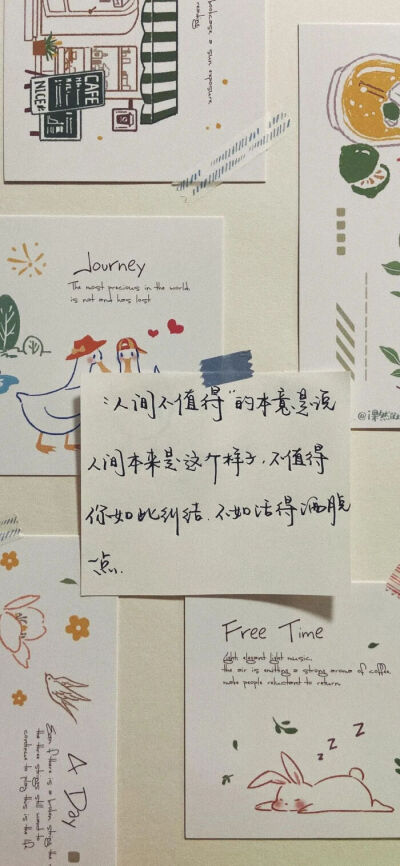 CAFE
NICE*
Journey
The most precious in the world,
is not and has lost
"人间不值得"的本意是说
人间本来是这个样子,不值得
你如此纠结.不如活得洒脱
一点.
Free Time
Light elegant light music,
the air is emitting a strong aroma of coffee,
make people reluctant to return
A Day
the three strings still want to
continue to play this is the life